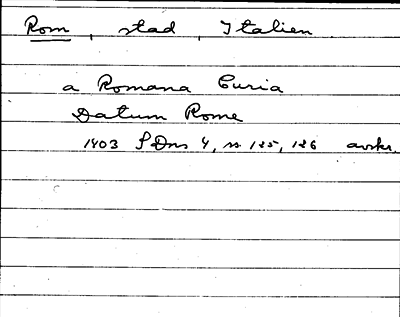 Rom, stad, Italien.
a Romana Curia
Datum Rome
1403 SDns 4, n 125, 126 avskr.